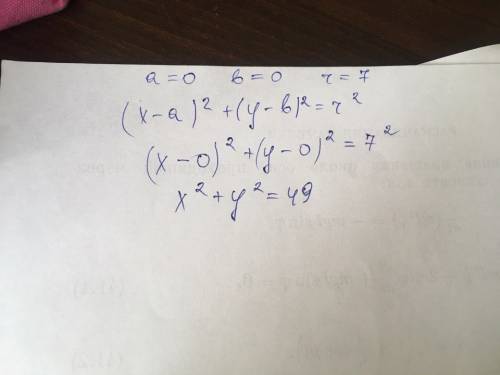 a=0 b=0 r=7
(x-a)²+(y-b)²=r²
(x-0)²+(y-0)²=7²
x²+y²=49